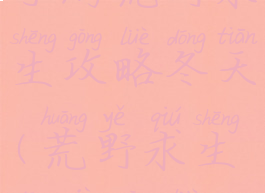 shēng gōng lüè dōng tiān
生攻略冬天
huāng yě qiú shēng
(荒野求生